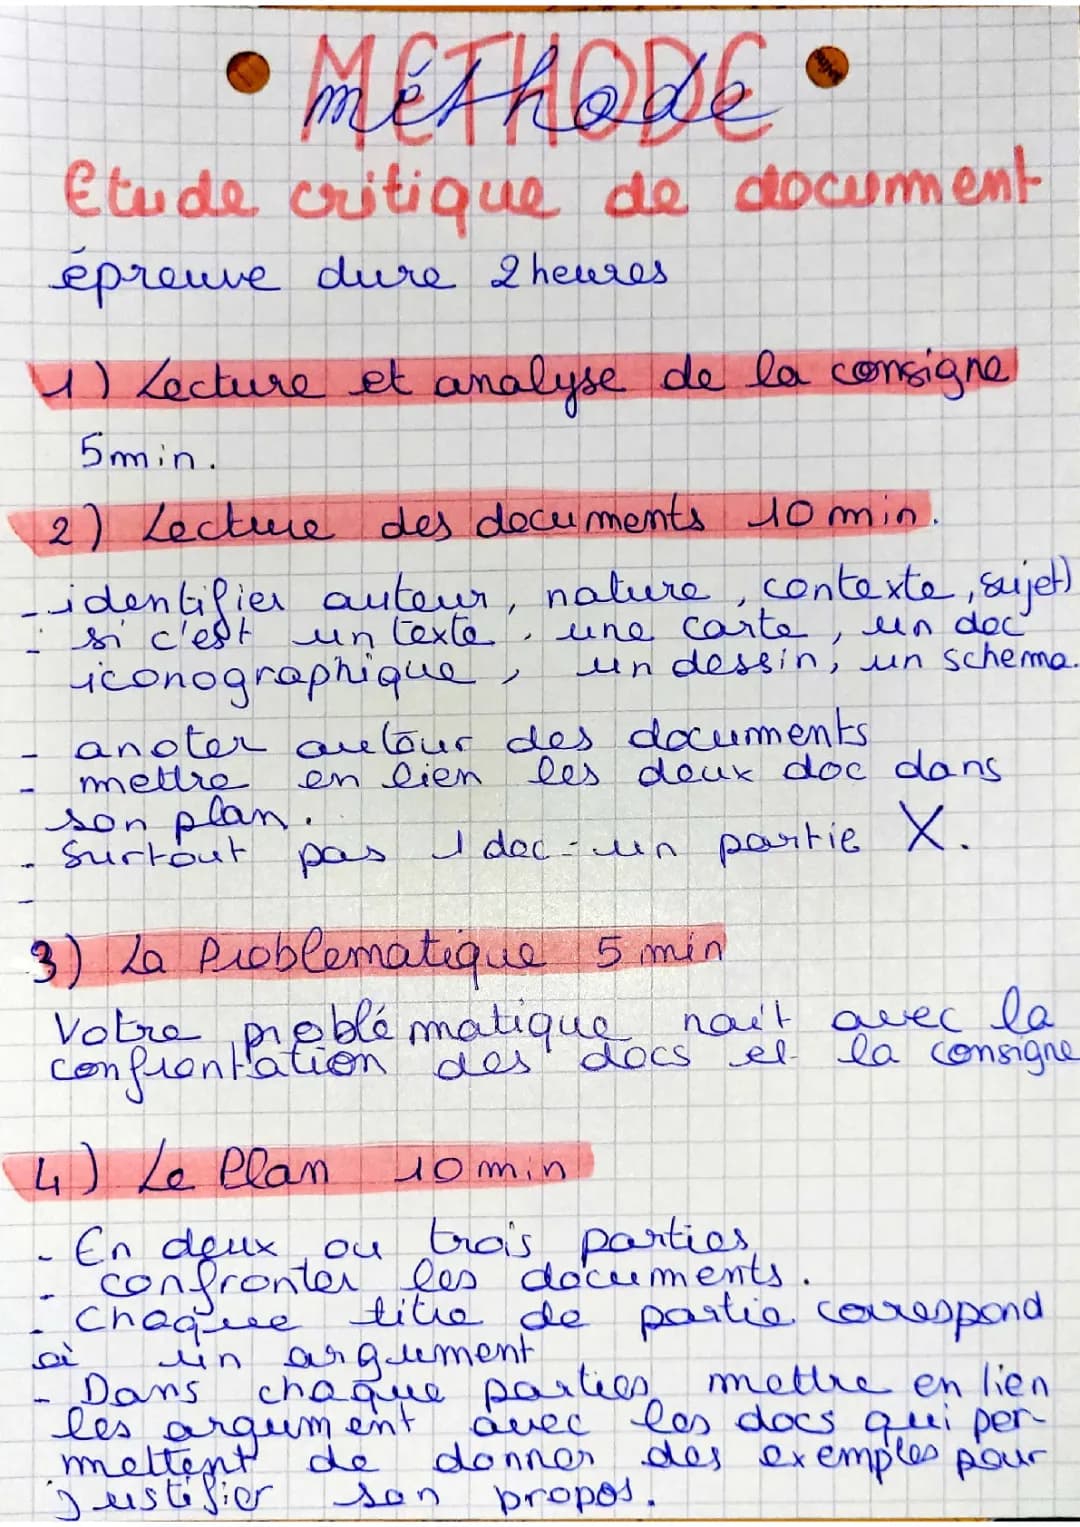 METHODE
méthode
Etude critique de document
épreuve dure 2 heures
1) Lecture et analyse de la consigne
5 min.
2) Lecture des documents 10 min.
- identifier auteur, nature, contexte, sujet)
- si c'est un texte, une carte, un doc
iconographique, un dessin, un schema.
- anoter autour des documents
- mettre en lien les deux doc dans
son plan.
- Surtout pas 1 doc = un partie X.
-
3) La Problematique 5 min
Votre problématique nait avec la
confrontation des docs et la consigne
4) Le Plan 10 min
- En deux ou trois parties
- confronter les documents.
- Chaque titre de partie correspond
à un argument
- Dans chaque parties mettre en lien
les argument avec les docs qui per-
mettent de donner des exemples pour
justifier son propos.